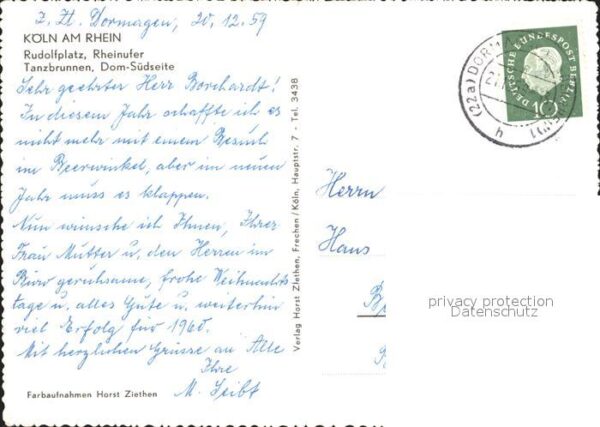 z. Zt. Dormagen, 20.12.59
KÖLN AM RHEIN
Rudolfplatz, Rheinufer
Tanzbrunnen, Dom-Südseite
Sehr geehrter Herr Borchardt!
In diesem Jahr schaffte ich es
nicht mehr mit einem Besuch
im Beerwinkel, aber im neuen
Jahr muss es klappen.
Nun wünsche ich Ihnen, Ihrer
Frau Mutter u. den Herren im
Büro geruhsame, frohe Weihnachts
tage u. alles Gute u. weiterhin
viel Erfolg für 1960.
Mit herzlichen Grüsse an Alle
Ihre
M. Seibt
Farbaufnahmen Horst Ziethen
Verlag Horst Ziethen, Frechen/Köln, Hauptstr. 7 - Tel. 3438
(22a) DORMAGEN
DEUTSCHE BUNDESPOST BERLIN
10
Herrn
Hans
privacy protection
Datenschutz